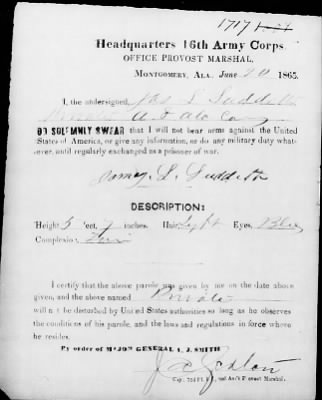 1717
Headquarters 16th Army Corps,
OFFICE PROVOST MARSHAL,
MONTGOMERY, ALA. June 1865.
I, the undersigned, Jas L Suddeth
Private Ala Cav
DO SOLEMNLY SWEAR that I will not bear arms against the United
States of America, or give any information, or do any military duty what-
ever, until regularly exchanged as a prisoner of war.
James L. Suddeth
DESCRIPTION:
Height 5 feet, 7 inches. Hair Light Eyes, Blue
Complexion,
I certify that the above parole was given by me on the date above
given, and the above named Private
will not be disturbed by United States authorities so long as he observes
the conditions of his parole, and the laws and regulations in force where
he resides.
By order of MAJOR GENERAL A. J. SMITH
Ass't Provost Marshal.